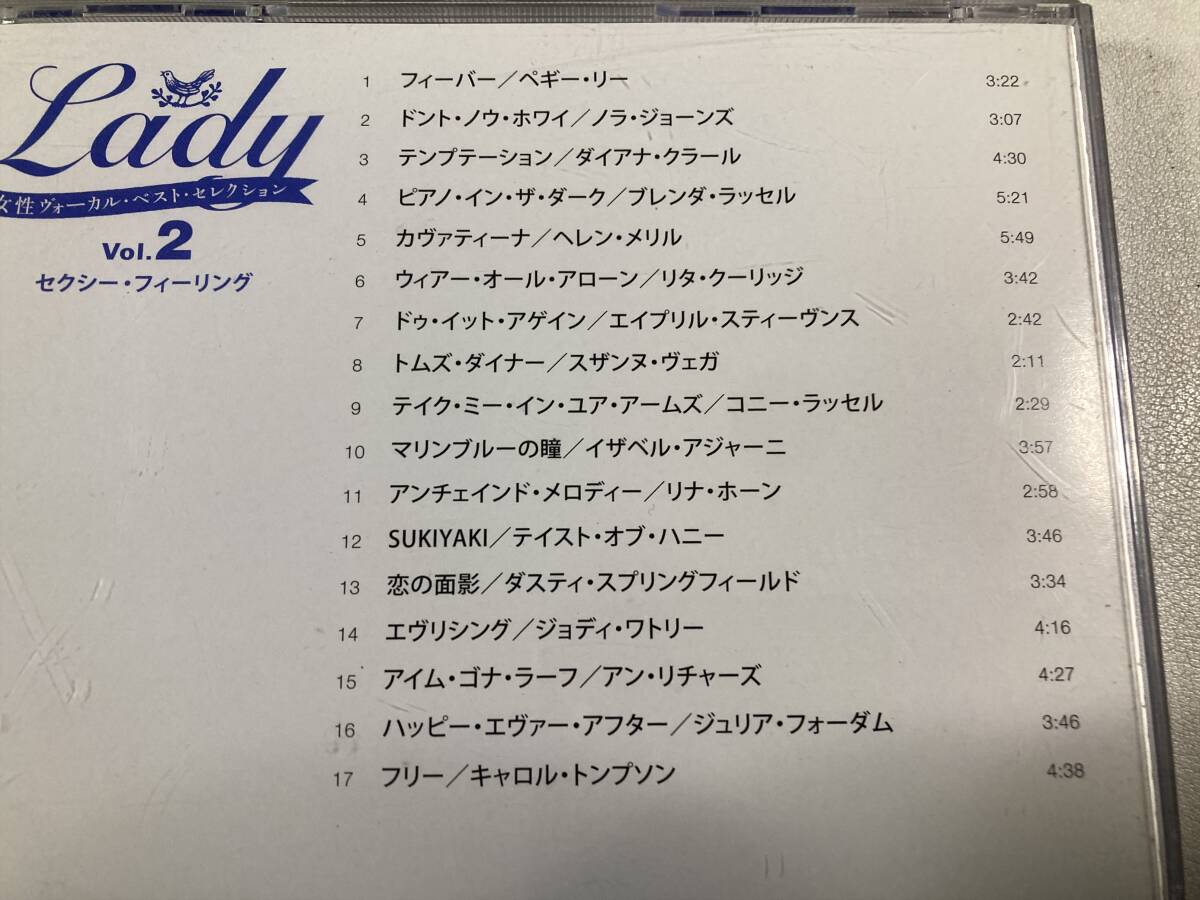 Lady
女性ヴォーカル・ベスト・セレクション
Vol.2
セクシー・フィーリング
1 フィーバー／ペギー・リー 3:22
2 ドント・ノウ・ホワイ／ノラ・ジョーンズ 3:07
3 テンプテーション／ダイアナ・クラール 4:30
4 ピアノ・イン・ザ・ダーク／ブレンダ・ラッセル 5:21
5 カヴァティーナ／ヘレン・メリル 5:49
6 ウィアー・オール・アローン／リタ・クーリッジ 3:42
7 ドゥ・イット・アゲイン／エイプリル・スティーヴンス 2:42
8 トムズ・ダイナー／スザンヌ・ヴェガ 2:11
9 テイク・ミー・イン・ユア・アームズ／コニー・ラッセル 2:29
10 マリンブルーの瞳／イザベル・アジャーニ 3:57
11 アンチェインド・メロディー／リナ・ホーン 2:58
12 SUKIYAKI／テイスト・オブ・ハニー 3:46
13 恋の面影／ダスティ・スプリングフィールド 3:34
14 エヴリシング／ジョディ・ワトリー 4:16
15 アイム・ゴナ・ラーフ／アン・リチャーズ 4:27
16 ハッピー・エヴァー・アフター／ジュリア・フォーダム 3:46
17 フリー／キャロル・トンプソン 4:38